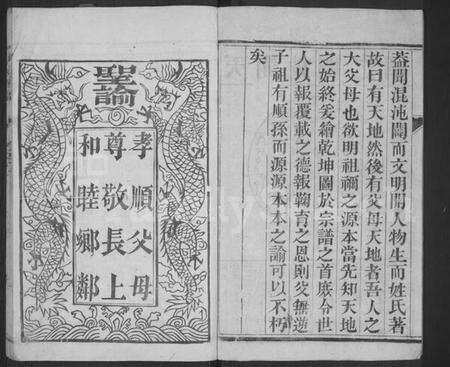 蓋聞混沌闢而文明開人物生而姓氏著
故曰有天地然後有父母天地者吾人之
大父母也欲明祖禰之源本當先知天地
之始終爰繪乾坤圖於宗譜之首庶今世
人以報覆載之德報鞠育之恩則父無逆
子祖有順孫而源源本本之諭可以不朽
矣
聖諭
孝順父母
尊敬長上
和睦鄉鄰